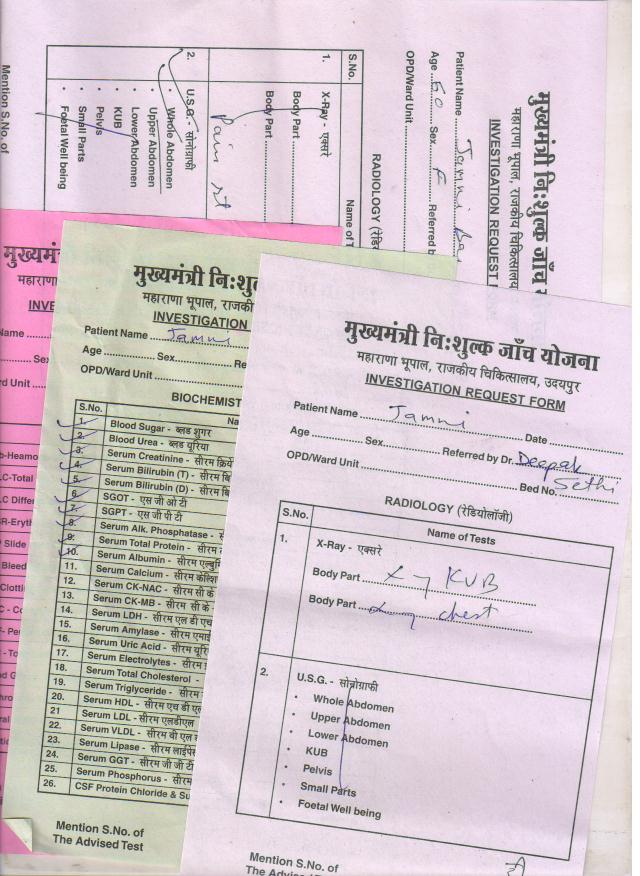 मुख्यमंत्री निःशुल्क जाँच
महाराणा भूपाल, राजकीय चिकित्सालय
INVESTIGATION REQUEST
Patient Name Jamni
Age 60 Sex F Referred b
OPD/Ward Unit
RADIOLOGY
S.No.
Name of T
1.
X-Ray - एक्सरे
Body Part
Body Part
Pain rt
2.
U.S.G. - सोनोग्राफी
• Whole Abdomen
• Upper Abdomen
• Lower Abdomen
• KUB
• Pelvis
• Small Parts
• Foetal Well being
Mention S.No. of
मुख्यमं
महाराण
INVE
Name
Sex
rd Unit
-Total
Differ
Slide
Bleed
Clotti
मुख्यमंत्री निःशु
महाराणा भूपाल, राजकी
INVESTIGATION
Patient Name Jamni
Age Sex Re
OPD/Ward Unit
BIOCHEMIST
S.No. Na
1. Blood Sugar - ब्लड शुगर
2. Blood Urea - ब्लड यूरिया
3. Serum Creatinine - सीरम क्रिये
4. Serum Bilirubin (T) - सीरम बि
5. Serum Bilirubin (D) - सीरम बि
6. SGOT - एस जी ओ टी
7. SGPT - एस जी पी टी
8. Serum Alk. Phosphatase - सी
9. Serum Total Protein - सीरम
10. Serum Albumin - सीरम एल्बुमि
11. Serum Calcium - सीरम केल्शि
12. Serum CK-NAC - सीरम सी के
13. Serum CK-MB - सीरम सी के
14. Serum LDH - सीरम एल डी एच
15. Serum Amylase - सीरम एमाई
16. Serum Uric Acid - सीरम यूरि
17. Serum Electrolytes - सीरम
18. Serum Total Cholesterol -
19. Serum Triglyceride - सीरम
20. Serum HDL - सीरम एच डी ए
21 Serum LDL - सीरम एलडीएल
22. Serum VLDL - सीरम वी एल
23. Serum Lipase - सीरम लाईपे
24. Serum GGT - सीरम जी जी टी
25. Serum Phosphorus - सीरम
26. CSF Protein Chloride & Su
Mention S.No. of
The Advised Test
मुख्यमंत्री निःशुल्क जाँच योजना
महाराणा भूपाल, राजकीय चिकित्सालय, उदयपुर
INVESTIGATION REQUEST FORM
Patient Name Jamni Date
Age Sex Referred by Dr. Deepak
Sethi
OPD/Ward Unit Bed No.
RADIOLOGY (रेडियोलॉजी)
S.No. Name of Tests
1. X-Ray - एक्सरे
Body Part X-ray KUB
Body Part X-ray chest
2. U.S.G. - सोनोग्राफी
• Whole Abdomen
• Upper Abdomen
• Lower Abdomen
• KUB
• Pelvis
• Small Parts
• Foetal Well being
Mention S.No. of